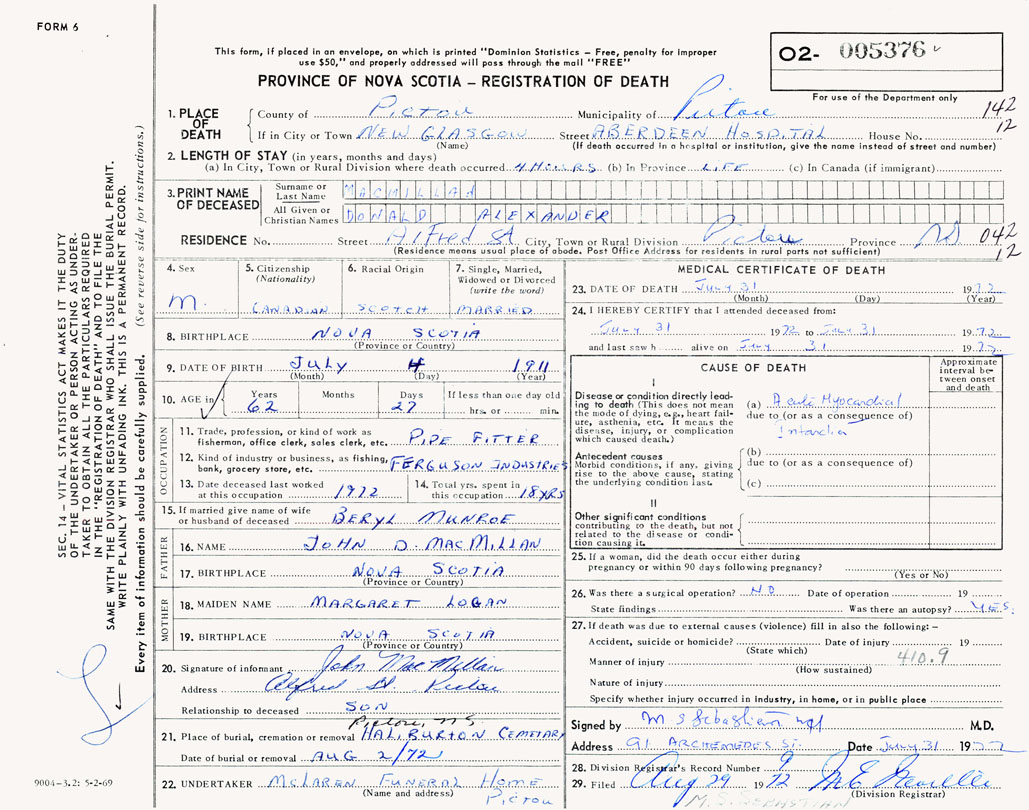 FORM 6
This form, if placed in an envelope, on which is printed "Dominion Statistics – Free, penalty for improper
use $50," and properly addressed will pass through the mail "FREE"
O2- 005376
For use of the Department only
PROVINCE OF NOVA SCOTIA – REGISTRATION OF DEATH
1. PLACE OF DEATH County of Pictou Municipality of Pictou 142
If in City or Town NEW GLASGOW Street ABERDEEN HOSPITAL House No. 12
(Name) (If death occurred in a hospital or institution, give the name instead of street and number)
2. LENGTH OF STAY (in years, months and days)
(a) In City, Town or Rural Division where death occurred 4 HOURS (b) In Province LIFE (c) In Canada (if immigrant)
3. PRINT NAME OF DECEASED Surname or Last Name MACMILLAN
All Given or Christian Names DONALD ALEXANDER
RESIDENCE No. Street Alfred St City, Town or Rural Division Pictou Province NS 042
(Residence means usual place of abode. Post Office Address for residents in rural parts not sufficient) 12
4. Sex M.
5. Citizenship (Nationality) CANADIAN
6. Racial Origin SCOTCH
7. Single, Married, Widowed or Divorced (write the word) MARRIED
8. BIRTHPLACE NOVA SCOTIA
(Province or Country)
9. DATE OF BIRTH JULY 4 1911
(Month) (Day) (Year)
10. AGE in Years 62 Months Days 27 If less than one day old hrs. or min.
OCCUPATION
11. Trade, profession, or kind of work as
fisherman, office clerk, sales clerk, etc. PIPE FITTER
12. Kind of industry or business, as fishing,
bank, grocery store, etc. FERGUSON INDUSTRIES
13. Date deceased last worked
at this occupation 1972
14. Total yrs. spent in
this occupation 18 YRS
15. If married give name of wife
or husband of deceased BERYL MUNROE
FATHER
16. NAME JOHN D. MACMILLAN
17. BIRTHPLACE NOVA SCOTIA
(Province or Country)
MOTHER
18. MAIDEN NAME MARGARET LOGAN
19. BIRTHPLACE NOVA SCOTIA
(Province or Country)
20. Signature of informant John MacMillan
Address Alfred St. Pictou
Relationship to deceased SON
Pictou, N.S.
21. Place of burial, cremation or removal HALIBURTON CEMETARY
Date of burial or removal AUG 2/72
22. UNDERTAKER McLAREN FUNERAL HOME
(Name and address) PICTOU
MEDICAL CERTIFICATE OF DEATH
23. DATE OF DEATH JULY 31 1972
(Month) (Day) (Year)
24. I HEREBY CERTIFY that I attended deceased from:
JULY 31 1972 to JULY 31 1972
and last saw h alive on July 31 1972
CAUSE OF DEATH
Approximate interval between onset and death
I
Disease or condition directly leading to death (This does not mean the mode of dying, e.g., heart failure, asthenia, etc. It means the disease, injury, or complication which caused death.)
(a) Acute Myocardial
due to (or as a consequence of)
Antecedent causes
Morbid conditions, if any, giving rise to the above cause, stating the underlying condition last.
(b)
due to (or as a consequence of)
(c)
II
Other significant conditions
contributing to the death, but not related to the disease or condition causing it.
25. If a woman, did the death occur either during
pregnancy or within 90 days following pregnancy?
(Yes or No)
26. Was there a surgical operation? NO Date of operation 19
State findings Was there an autopsy? YES.
27. If death was due to external causes (violence) fill in also the following: –
Accident, suicide or homicide? Date of injury 19
(State which)
Manner of injury 410.9
(How sustained)
Nature of injury
Specify whether injury occurred in industry, in home, or in public place
Signed by M S Sebastian M.D.
Address 91 ARCHEMEDES ST. Date JULY 31 1972
28. Division Registrar's Record Number 9
29. Filed Aug 29 1972
(Division Registrar)
M.S. SEBASTIAN
SEC. 14 – VITAL STATISTICS ACT MAKES IT THE DUTY
OF THE UNDERTAKER OR PERSON ACTING AS UNDER-
TAKER TO OBTAIN ALL THE PARTICULARS REQUIRED
IN THE "REGISTRATION OF DEATH" AND TO FILE THE
SAME WITH THE DIVISION REGISTRAR WHO SHALL ISSUE THE BURIAL PERMIT.
WRITE PLAINLY WITH UNFADING INK. THIS IS A PERMANENT RECORD.
Every item of information should be carefully supplied. (See reverse side for instructions.)
9004-3.2: 5-2-69